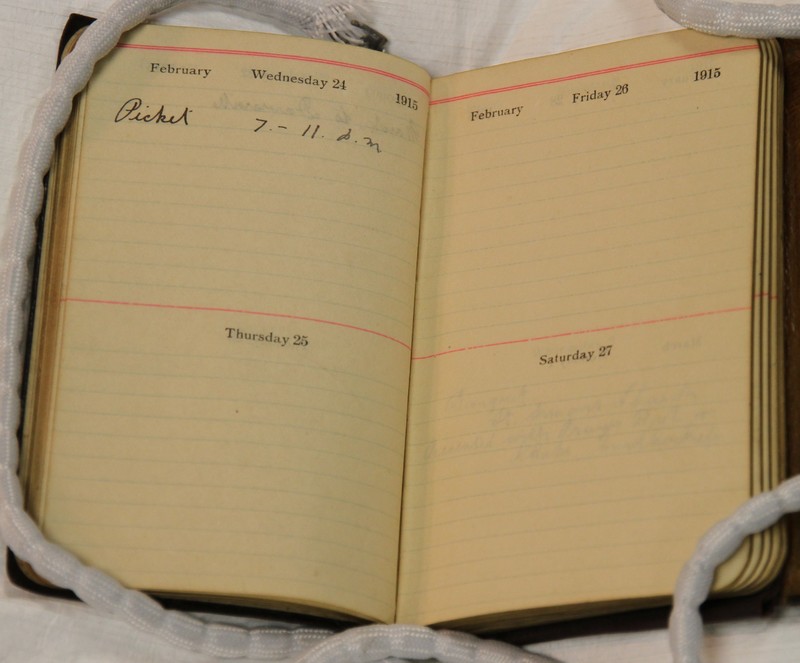 February Wednesday 24 1915
Picket 7.- 11. p.m
Thursday 25
February Friday 26 1915
Saturday 27